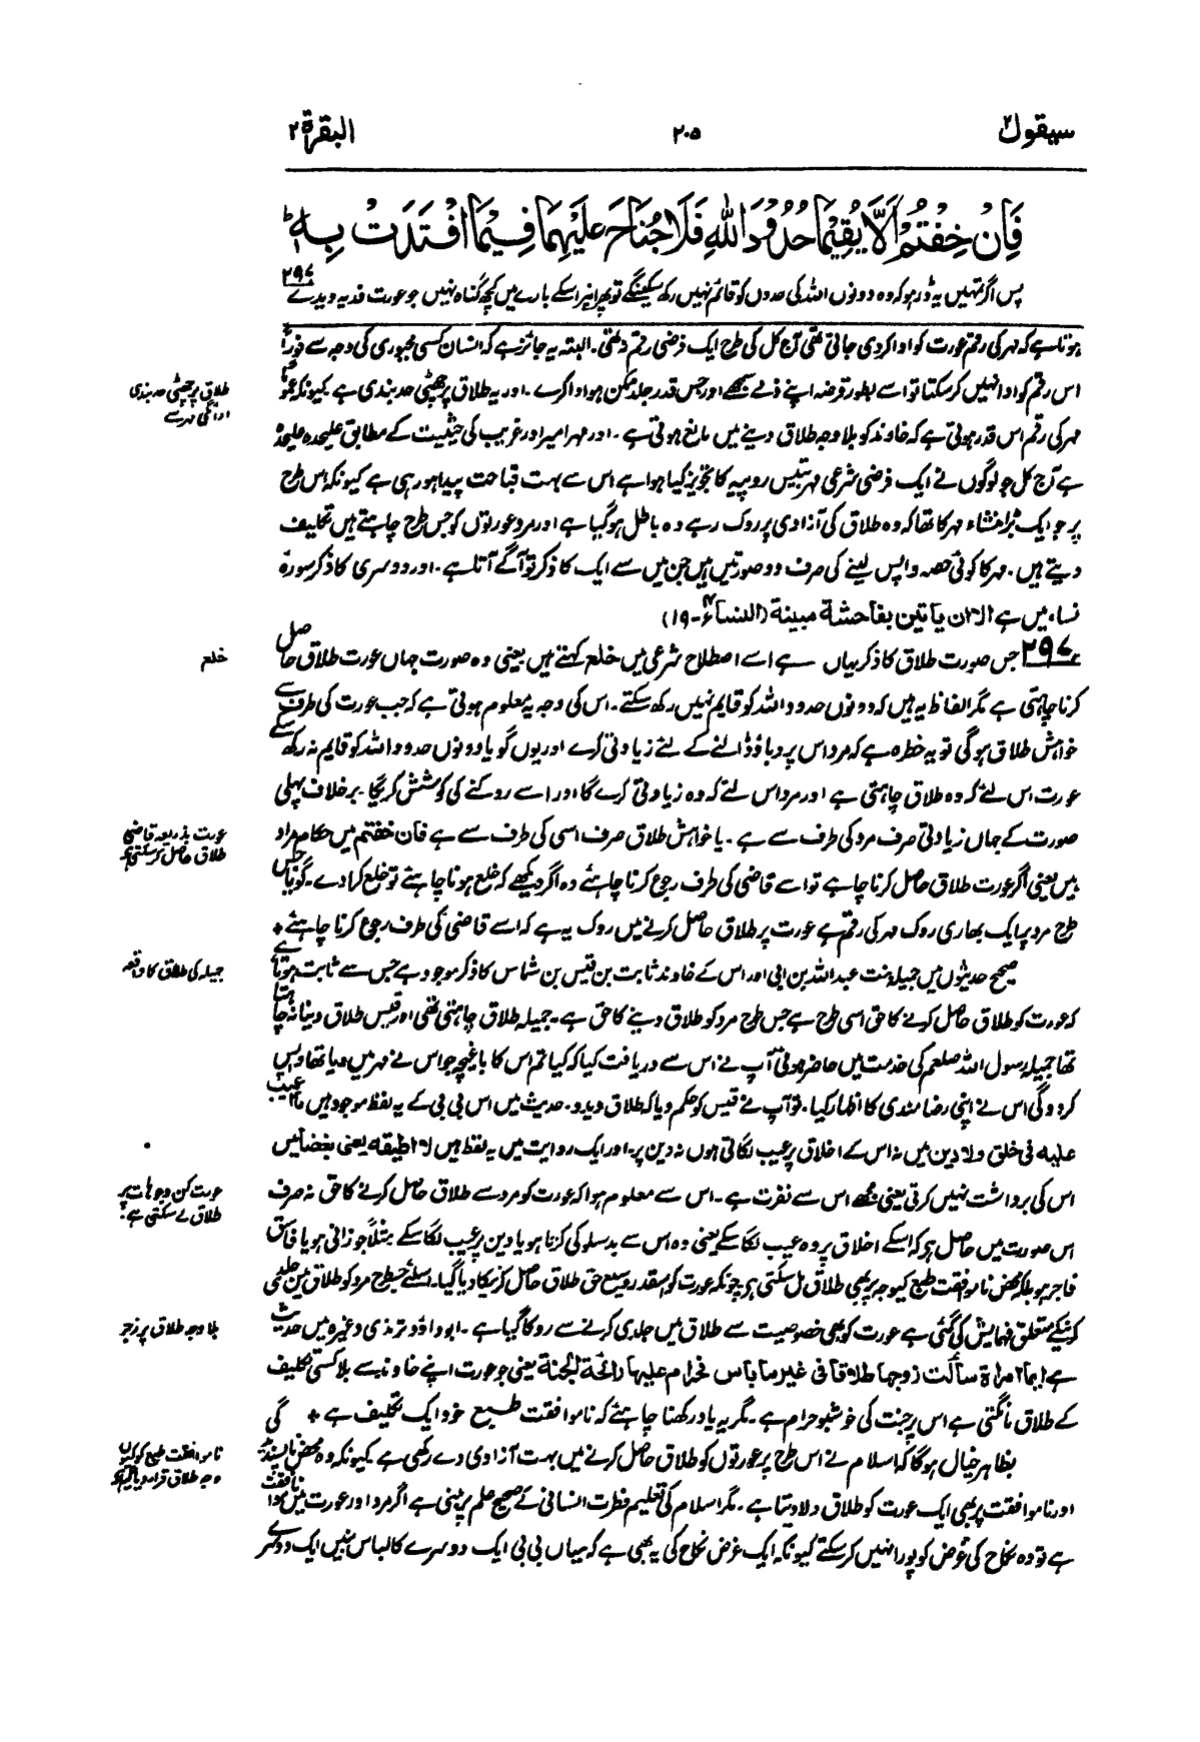 سیقول ۲
۲۰۵
البقرة ۲
فَاِنْ خِفْتُمْ اَلَّا یُقِیْمَا حُدُوْدَ اللّٰهِ فَلَا جُنَاحَ عَلَیْهِمَا فِیْمَا افْتَدَتْ بِهٖ ؕ
پس اگر تمہیں یہ ڈر ہو کہ وہ دونوں اللہ کی حدوں کو قائم نہیں رکھ سکینگے تو پھر انپر اسکے بارے میں کچھ گناہ نہیں جو عورت فدیہ دیدے ۲۹۷
ہوتا ہے کہ مہر کی رقم عورت کو ادا کردی جاتی تھی آج کل کی طرح ایک فرضی رقم نہ تھی۔ البتہ یہ جائز ہے کہ انسان کسی مجبوری کی وجہ سے فوراً
اس رقم کو ادا نہیں کرسکتا تو اسے بطور قرضہ اپنے ذمے سمجھے اور جس قدر جلد ممکن ہو ادا کرے۔ اور یہ طلاق پر چھٹی حد بندی ہے کیونکہ عموماً
طلاق پر چھٹی حد بندی
ادائگی مہر سے
مہر کی رقم اس قدر ہوتی ہے کہ خاوند کو بلا وجہ طلاق دینے میں مانع ہوتی ہے۔ اور مہر امیر اور غریب کی حیثیت کے مطابق علیحدہ علیحدہ
ہے آج کل جو لوگوں نے ایک فرضی شرعی مہر بتیس روپیہ کا تجویز کیا ہوا ہے اس سے بہت قباحت پیدا ہورہی ہے کیونکہ اس طرح
پر جو ایک بڑا منشاء مہر کا تھا کہ وہ طلاق کی آزادی پر روک رہے وہ باطل ہوگیا ہے اور مرد عورتوں کو جس طرح چاہتے ہیں تکلیف
دیتے ہیں۔ مہر کا کوئی حصہ واپس لینے کی صرف دو صورتیں ہیں جن میں سے ایک کا ذکر تو آگے آتا ہے۔ اور دوسری کا ذکر سورۂ
نساء میں ہے الا ان یأتین بفاحشة مبینة (النساء۴-۱۹)
۲۹۷ جس صورت طلاق کا ذکر یہاں ہے اسے اصطلاح شرعی میں خلع کہتے ہیں یعنی وہ صورت جہاں عورت طلاق حاصل
خلع
کرنا چاہتی ہے مگر الفاظ یہ ہیں کہ دونوں حدود اللہ کو قایم نہیں رکھ سکتے۔ اس کی وجہ یہ معلوم ہوتی ہے کہ جب عورت کی طرف سے
خواہش طلاق ہوگی تو یہ خطرہ ہے کہ مرد اس پر دباؤ ڈالنے کے لئے زیادتی کرے اور یوں گویا دونوں حدود اللہ کو قایم نہ رکھ سکے
عورت اس لئے کہ وہ طلاق چاہتی ہے اور مرد اس لئے کہ وہ زیادتی کرے گا اور اسے روکنے کی کوشش کریگا۔ برخلاف پہلی
صورت کے جہاں زیادتی صرف مرد کی طرف سے ہے۔ یا خواہش طلاق صرف اسی کی طرف سے ہے فان خفتم میں حکام مراد
عورت بذریعہ قاضی
طلاق حاصل کرسکتی ہے
ہیں یعنی اگر عورت طلاق حاصل کرنا چاہے تو اسے قاضی کی طرف رجوع کرنا چاہئے وہ اگر دیکھے کہ خلع ہونا چاہئے تو خلع کرادے۔ گویا جس
طرح مرد پر ایک بھاری روک مہر کی رقم ہے عورت پر طلاق حاصل کرنے میں روک یہ ہے کہ اسے قاضی کی طرف رجوع کرنا چاہئے +
صحیح حدیثوں میں جمیلہ بنت عبد اللہ بن ابی اور اس کے خاوند ثابت بن قیس بن شماس کا ذکر موجود ہے جس سے ثابت ہوتا ہے
جمیلہ کی طلاق کا واقعہ
کہ عورت کو طلاق حاصل کرنے کا حق اسی طرح ہے جس طرح مرد کو طلاق دینے کا حق ہے۔ جمیلہ طلاق چاہتی تھی اور قیس طلاق دینا نہ چاہتا
تھا جمیلہ رسول اللہ صلعم کی خدمت میں حاضر ہوئی آپ نے اس سے دریافت کیا کہ کیا تم اس کا باغیچہ جو اس نے مہر میں دیا تھا واپس
کردوگی اس نے اپنی رضامندی کا اظہار کیا۔ تو آپ نے قیس کو حکم دیا کہ طلاق دیدو۔ حدیث میں اس بی بی کے یہ لفظ موجود ہیں ما اعیب
علیه فی خلق ولا دین میں نہ اس کے اخلاق پر عیب لگاتی ہوں نہ دین پر۔ اور ایک روایت میں یہ لفظ ہیں لا اطیقه یعنی بغضا میں
اس کی برداشت نہیں کرتی یعنی مجھے اس سے نفرت ہے۔ اس سے معلوم ہوا کہ عورت کو مرد سے طلاق حاصل کرنے کا حق نہ صرف
عورت کن وجوہات پر
طلاق لے سکتی ہے؟
اس صورت میں حاصل ہے کہ اسکے اخلاق پر وہ عیب لگا سکے یعنی وہ اس سے بدسلوکی کرتا ہو یا دین پر عیب لگا سکے مثلاً جو زانی ہو یا فاسق
فاجر ہو بلکہ محض ناموافقت طبع کیوجہ پر بھی طلاق مل سکتی ہے چونکہ عورت کو اسقدر وسیع حق طلاق حاصل کرنیکا دیا گیا۔ اسلئے جسطرح مرد کو طلاق میں جلدی
کرنیکے متعلق فہمایش کی گئی ہے عورت کو بھی خصوصیت سے طلاق میں جلدی کرنے سے روکا گیا ہے۔ ابو داؤد ترمذی وغیرہ میں حدیث
بلا وجہ طلاق پر زجر
ہے ایما امراة سألت زوجها طلاقا فی غیر ما بأس فحرام علیها رائحة الجنة یعنی جو عورت اپنے خاوند سے بلا کسی تکلیف
کے طلاق مانگتی ہے اس پر جنت کی خوشبو حرام ہے۔ مگر یہ یاد رکھنا چاہئے کہ ناموافقت طبع خود ایک تکلیف ہے +
بظاہر خیال ہوگا کہ اسلام نے اس طرح پر عورتوں کو طلاق حاصل کرنے میں بہت آزادی دے رکھی ہے کیونکہ وہ محض ناپسندیدگی
ناموافقت طبع کو کیوں
وجہ طلاق قرار دیا گیا ہے
اور ناموافقت پر بھی ایک عورت کو طلاق دلا دیتا ہے۔ مگر اسلام کی تعلیم فطرت انسانی کے صحیح علم پر مبنی ہے اگر مرد اور عورت میں موافقت
ہے تو وہ نکاح کی غرض کو پورا نہیں کرسکتے کیونکہ ایک غرض نکاح کی یہ بھی ہے کہ میاں بی بی ایک دوسرے کا لباس بنیں ایک دوسرے